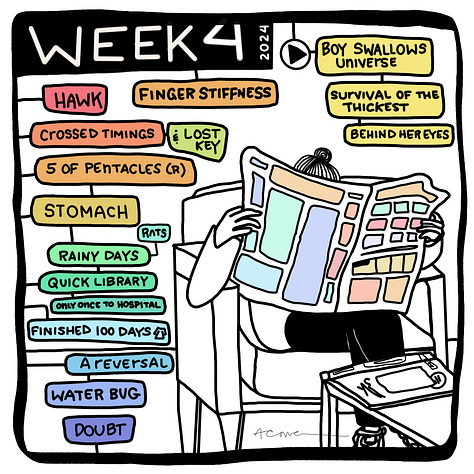 WEEK 4
2024
BOY SWALLOWS
UNIVERSE
HAWK
FINGER STIFFNESS
SURVIVAL OF THE
THICKEST
CROSSED TIMINGS
& LOST
KEY
BEHIND HER EYES
5 OF PENTACLES (R)
STOMACH
RATS
RAINY DAYS
QUICK LIBRARY
ONLY ONCE TO HOSPITAL
FINISHED 100 DAYS
A REVERSAL
WATER BUG
DOUBT